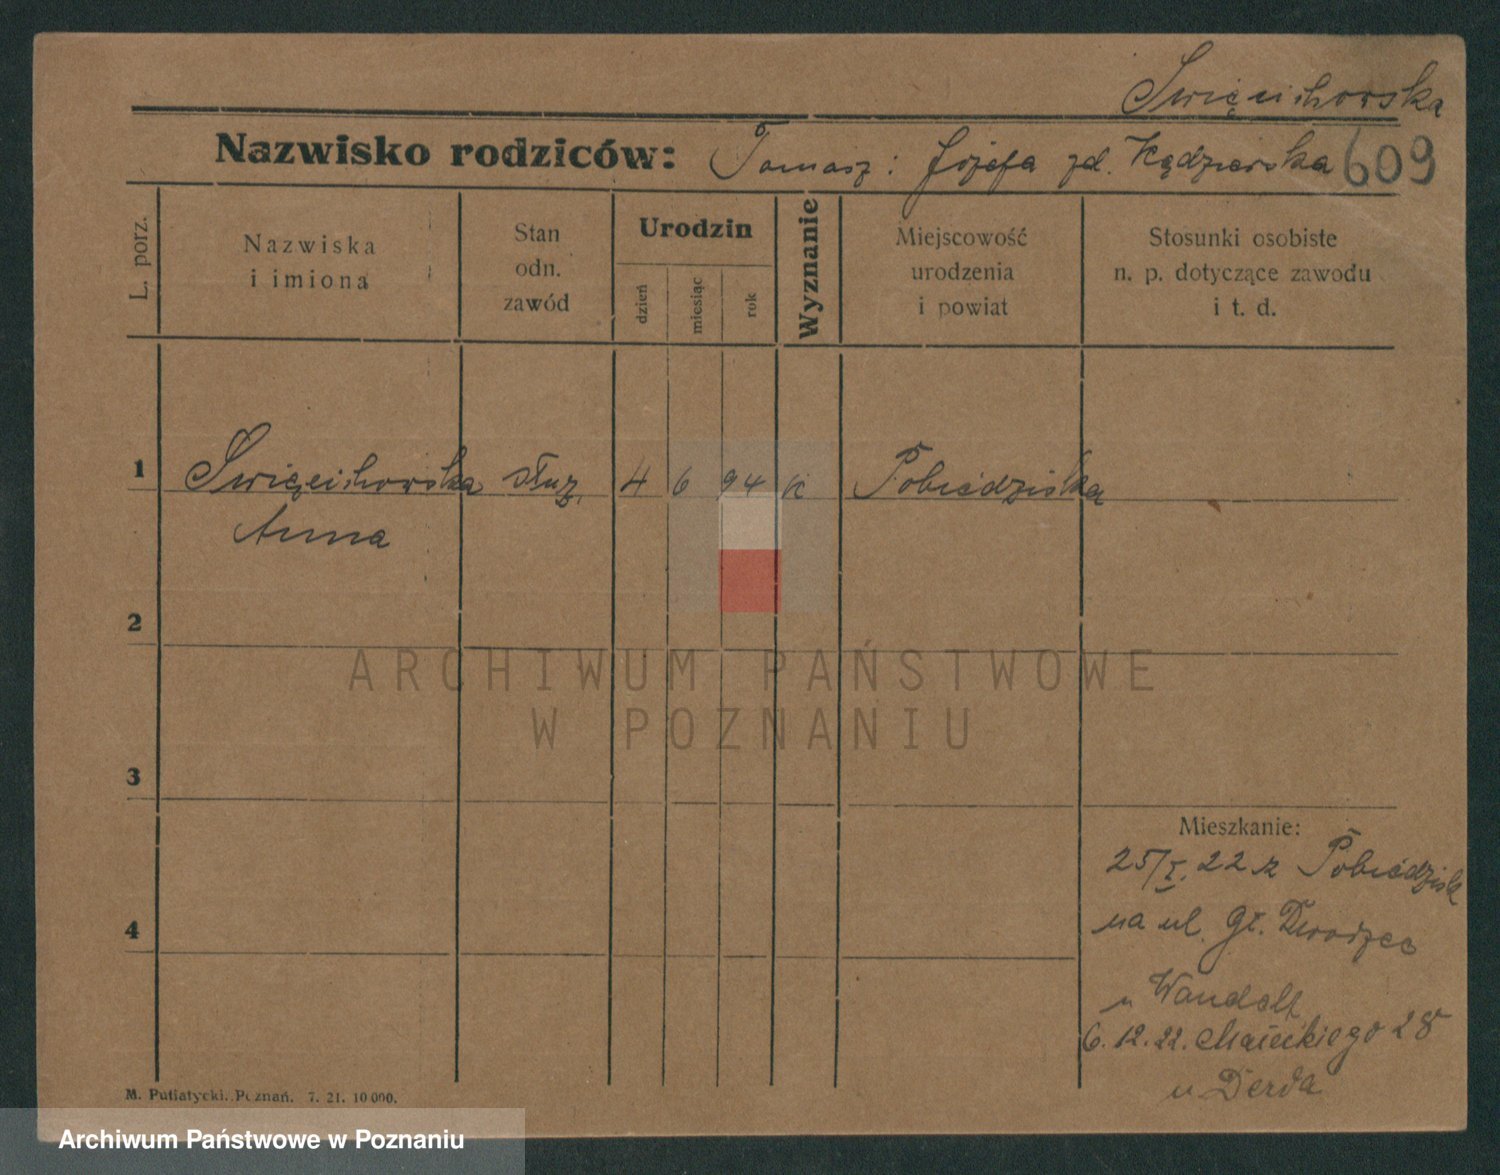 Święcichowska
Nazwisko rodziców: Tomasz: Józefa zd. Kędzierska 609
L. porz.
Nazwiska
i imiona
Stan
odn.
zawód
Urodzin
dzień
miesiąc
rok
Wyznanie
Miejscowość
urodzenia
i powiat
Stosunki osobiste
n. p. dotyczące zawodu
i t. d.
1 Święcichowska służ. 4 6 94 k Pobiedziska
Anna
2
ARCHIWUM PAŃSTWOWE
W POZNANIU
3
Mieszkanie:
25/I. 22 z Pobiedzisk
4
na ul. Gł. Dworzec
u Wandelt
6. 12. 22. Małeckiego 28
u Derda
M. Putiatycki. Poznań. 7. 21. 10 000.
Archiwum Państwowe w Poznaniu